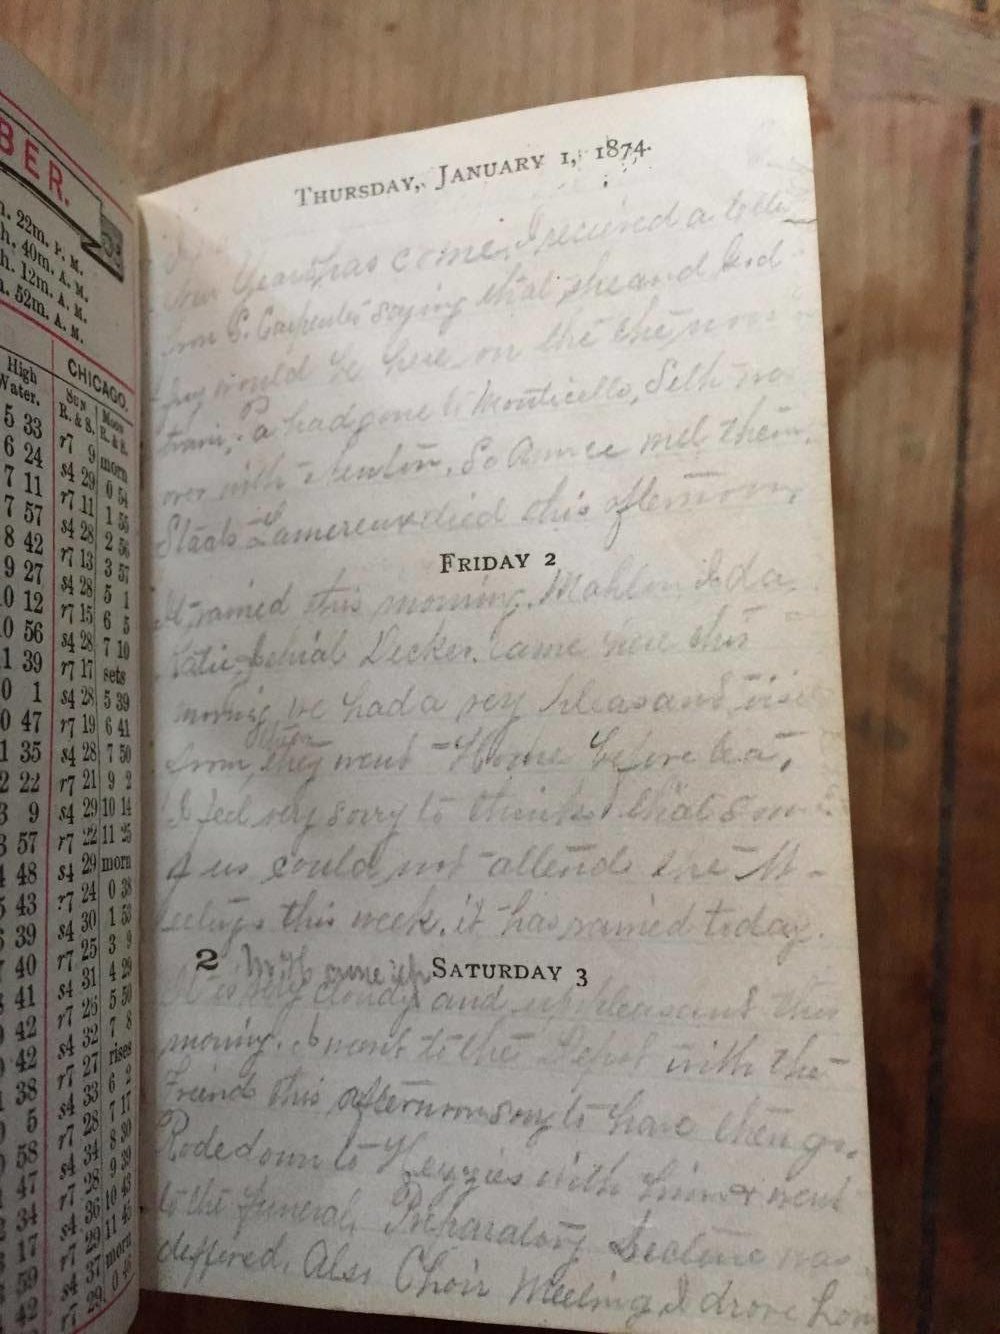 BER.
h. 22m. P. M.
h. 40m. A. M.
h. 12m. A. M.
h. 52m. A. M.
High Water.
CHICAGO.
Sun R. & S.
Moon R. & S.
5 33 r7 9 morn
6 24 s4 29 0 54
7 11 r7 11 1 55
7 57 s4 28 2 56
8 42 r7 13 3 57
9 27 s4 28 5 1
10 12 r7 15 6 5
10 56 s4 28 7 10
11 39 r7 17 sets
0 1 s4 28 5 39
0 47 r7 19 6 41
1 35 s4 28 7 50
2 22 r7 21 9 2
3 9 s4 29 10 14
3 57 r7 22 11 25
4 48 s4 29 morn
5 43 r7 24 0 38
6 39 s4 30 1 53
7 40 r7 25 3 9
8 41 s4 31 4 29
9 42 r7 26 5 50
42 s4 32 7 8
38 r7 27 rises
5 s4 33 6 2
58 r7 28 7 17
47 s4 34 8 30
34 r7 28 9 39
17 s4 36 10 43
59 r7 29 11 45
42 s4 37 morn
r7 29 0 46
THURSDAY, JANUARY 1, 1874.
New Year has come, I received a letter
from S. Carpenter saying that she and
they would be here on the the noon
train. Pa had gone to Monticello, Seth was
over with Newton. So Annie met them.
Staats Lamereux died this afternoon,
FRIDAY 2
It rained this morning. Mahlon Ida
Katie Decker. Came here this
morning we had a very pleasant visit
from them they went Home before tea,
I feel very sorry to think that some
of us could not attend the M-
eetings this week. it has rained today.
2 SATURDAY 3
It is very cloudy and unpleasant this
morning. I went to the Depot with the
Friends this afternoon sorry to have them go.
Rode down to with him & went
to the funeral, Preparatory Lecture was
deffered. Also Choir Meeting I drove hom